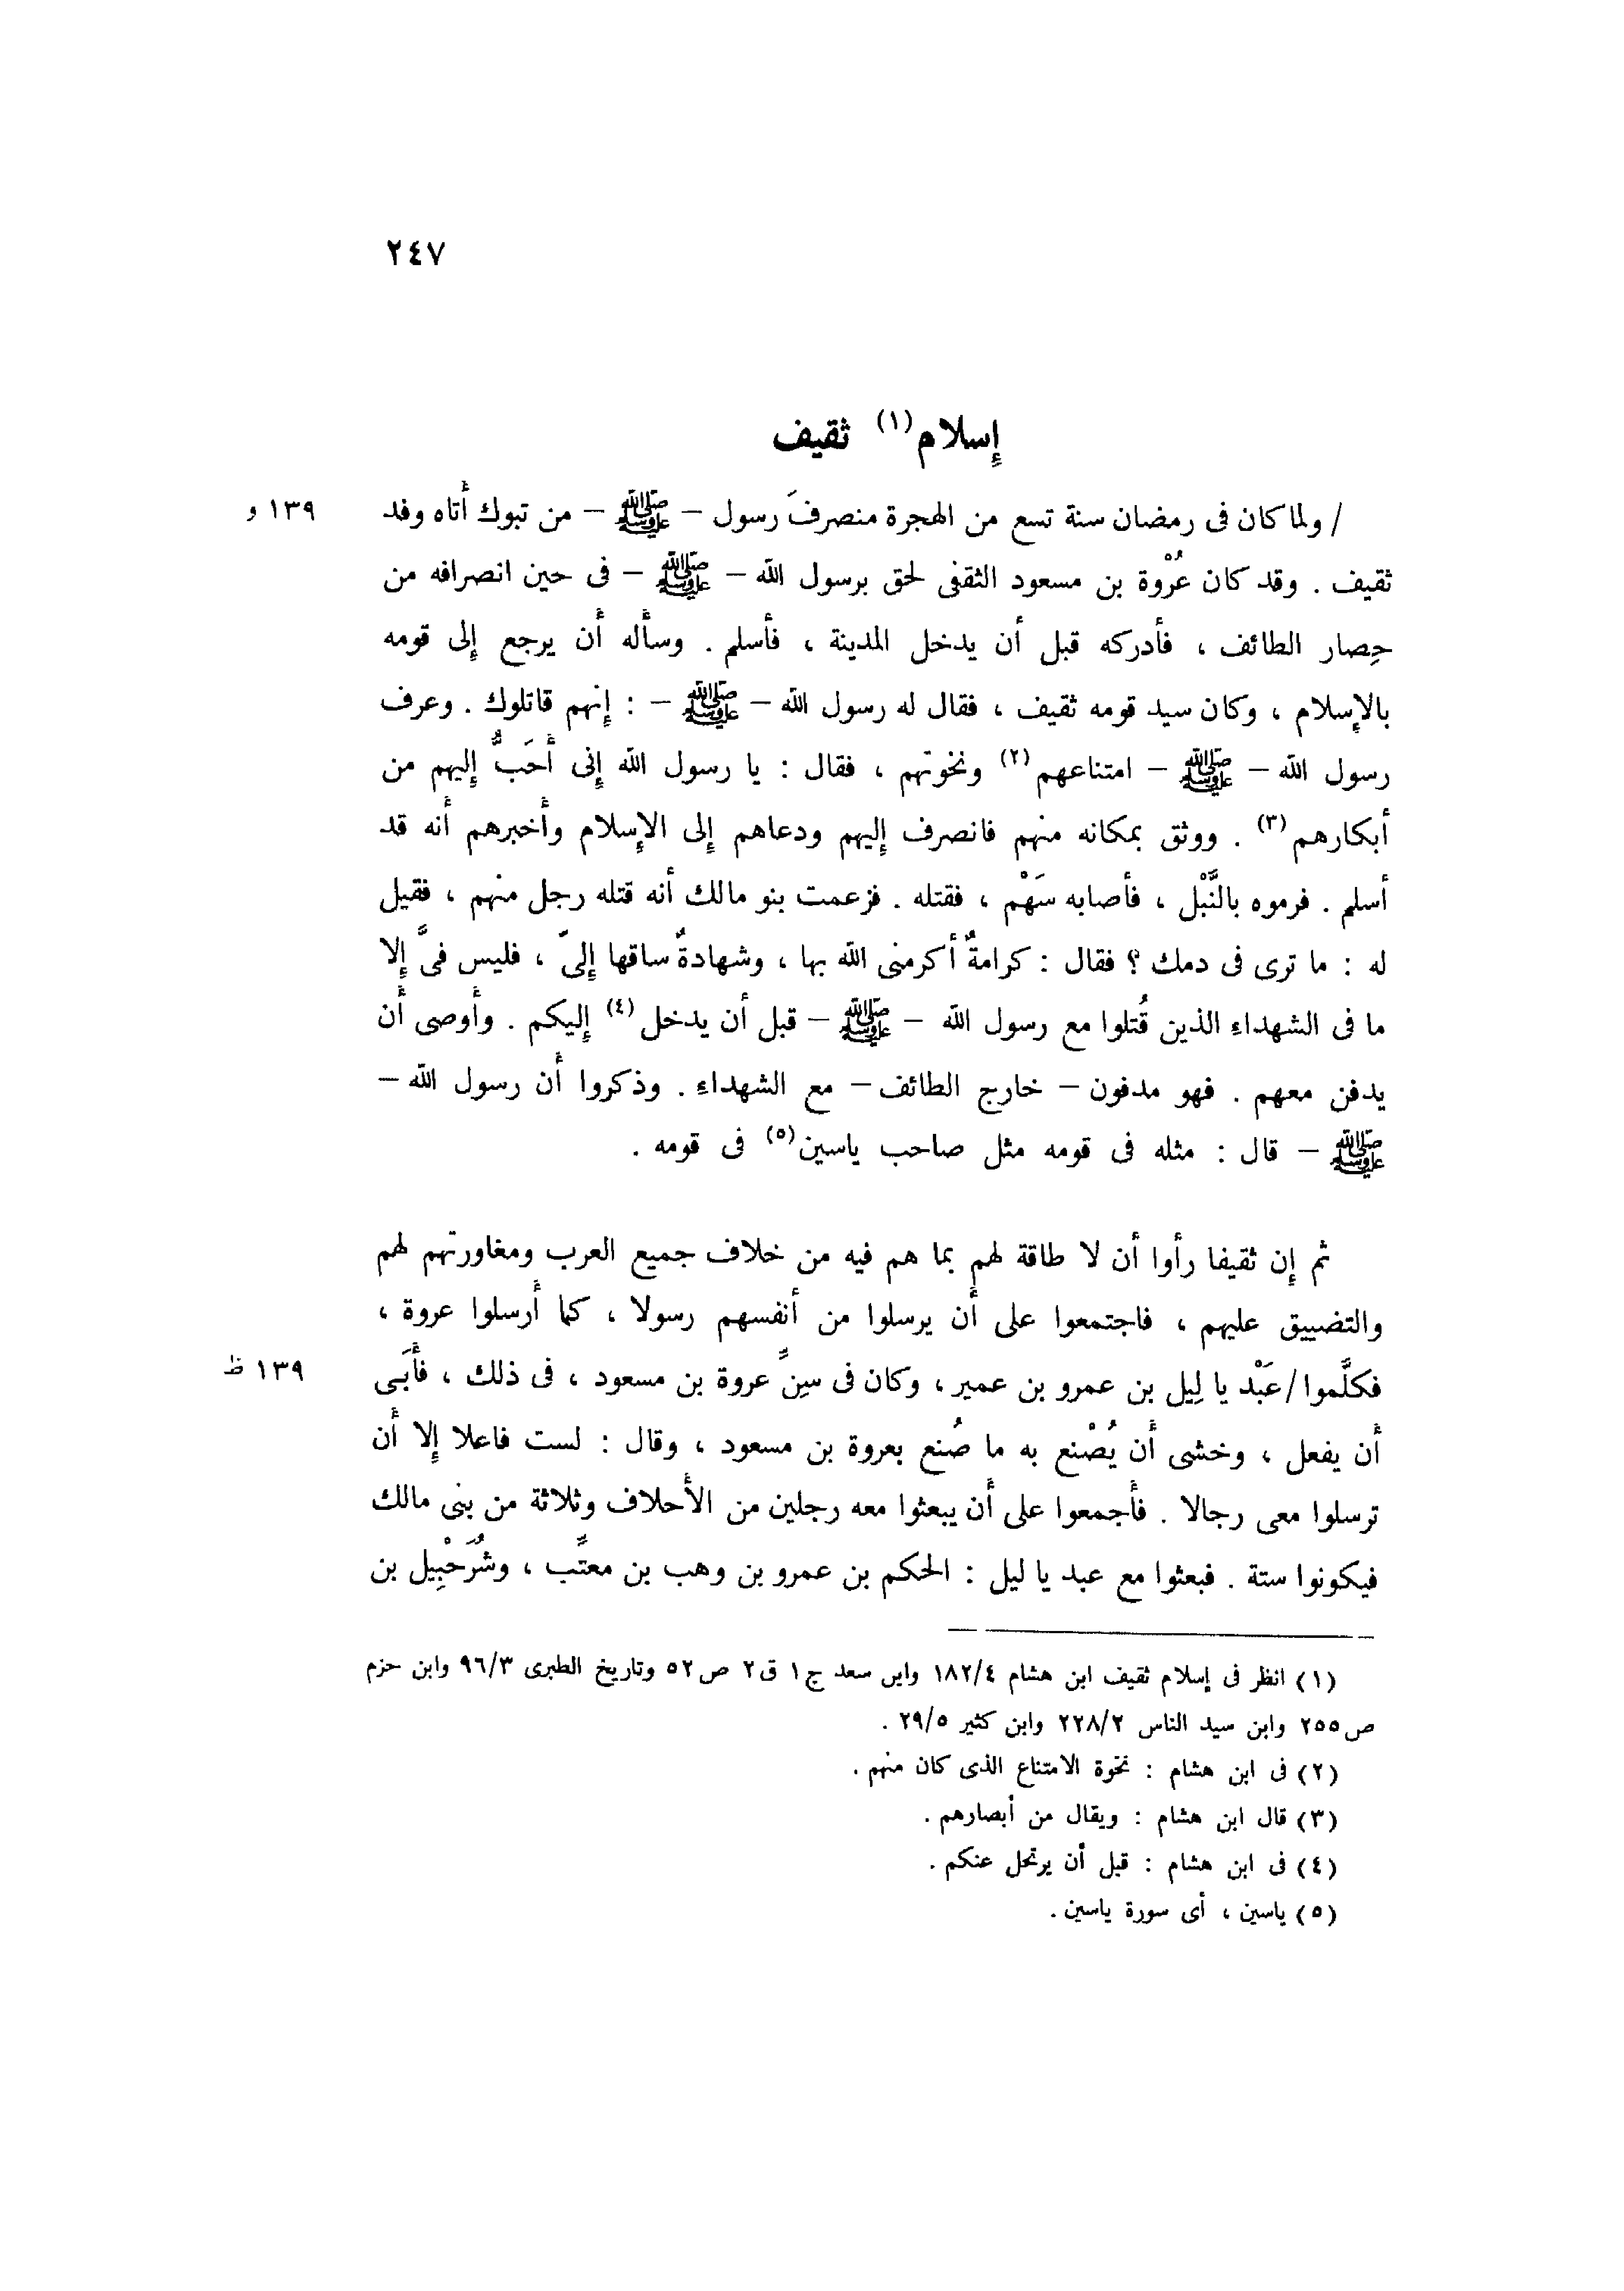 ٢٤٧
إِسلام(١) ثقيف
/ ولما كان فى رمضان سنة تسع من الهجرة منصرفَ رسول – ﷺ – من تبوك أَتاه وفد
١٣٩ و
ثقيف . وقد كان عُرْوة بن مسعود الثقفى لحق برسول الله – ﷺ – فى حين انصرافه من
حِصار الطائف ، فأَدركه قبل أَن يدخل المدينة ، فأَسلم . وسأَله أَن يرجع إِلى قومه
بالإِسلام ، وكان سيد قومه ثقيف ، فقال له رسول الله – ﷺ – : إِنهم قاتلوك . وعرف
رسول الله – ﷺ – امتناعهم(٢) ونخوتهم ، فقال : يا رسول الله إِنى أَحَبُّ إِليهم من
أَبكارهم(٣) . ووثق بمكانه منهم فانصرف إِليهم ودعاهم إِلى الإِسلام وأَخبرهم أَنه قد
أَسلم . فرموه بالنَّبْل ، فأَصابه سَهْم ، فقتله . فزعمت بنو مالك أَنه قتله رجل منهم ، فقيل
له : ما ترى فى دمك ؟ فقال : كرامةٌ أَكرمنى الله بها ، وشهادةٌ ساقها إِلىّ ، فليس فىَّ إِلا
ما فى الشهداءِ الذين قُتلوا مع رسول الله – ﷺ – قبل أَن يدخل(٤) إِليكم . وأَوصى أَن
يدفن معهم . فهو مدفون – خارج الطائف – مع الشهداءِ . وذكروا أَن رسول الله –
ﷺ – قال : مثله فى قومه مثل صاحب ياسين(٥) فى قومه .
ثم إِن ثقيفا رأَوا أَن لا طاقة لهم بما هم فيه من خلاف جميع العرب ومغاورتهم لهم
والتضييق عليهم ، فاجتمعوا على أَن يرسلوا من أَنفسهم رسولا ، كما أَرسلوا عروة ،
فكلَّموا / عَبْد يا لِيل بن عمرو بن عمير ، وكان فى سِنِّ عروة بن مسعود ، فى ذلك ، فأَبَى
١٣٩ ظ
أَن يفعل ، وخشى أَن يُصْنع به ما صُنع بعروة بن مسعود ، وقال : لست فاعلا إِلا أَن
ترسلوا معى رجالا . فأَجمعوا على أَن يبعثوا معه رجلين من الأَحلاف وثلاثة من بنى مالك
فيكونوا ستة . فبعثوا مع عبد يا ليل : الحكم بن عمرو بن وهب بن معتِّب ، وشُرَحْبِيل بن
(١) انظر فى إسلام ثقيف ابن هشام ١٨٢/٤ وابن سعد ج١ ق٢ ص٥٢ وتاريخ الطبرى ٩٦/٣ وابن حزم
ص٢٥٥ وابن سيد الناس ٢٢٨/٢ وابن كثير ٢٩/٥ .
(٢) فى ابن هشام : نخوة الامتناع الذى كان منهم .
(٣) قال ابن هشام : ويقال من أبصارهم .
(٤) فى ابن هشام : قبل أن يرتحل عنكم .
(٥) ياسين ، أى سورة ياسين .